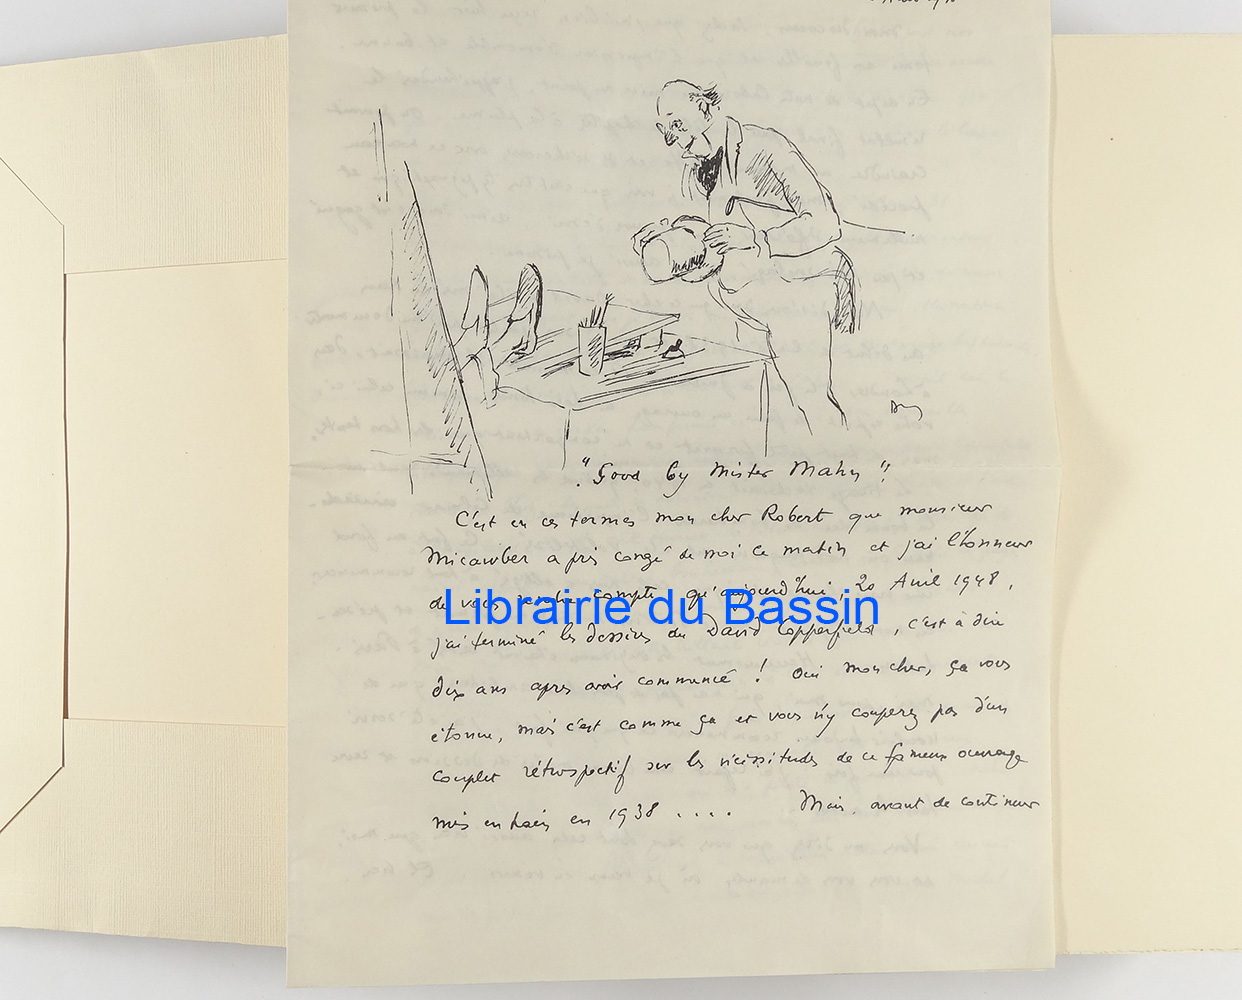 "Good by Mister Mahy"!
C'est en ces termes mon cher Robert que monsieur
Micawber a pris congé de moi ce matin et j'ai l'honneur
de vous rendre compte qu'aujourd'hui, 20 Avril 1948,
Librairie du Bassin
j'ai terminé les dessins du David Copperfield, c'est à dire
dix ans apres avoir commencé! Oui mon cher, ça vous
étonne, mais c'est comme ça et vous n'y couperez pas d'un
couplet rétrospectif sur les vicissitudes de ce fameux ouvrage
mis en train en 1938 .... Mais, avant de continuer